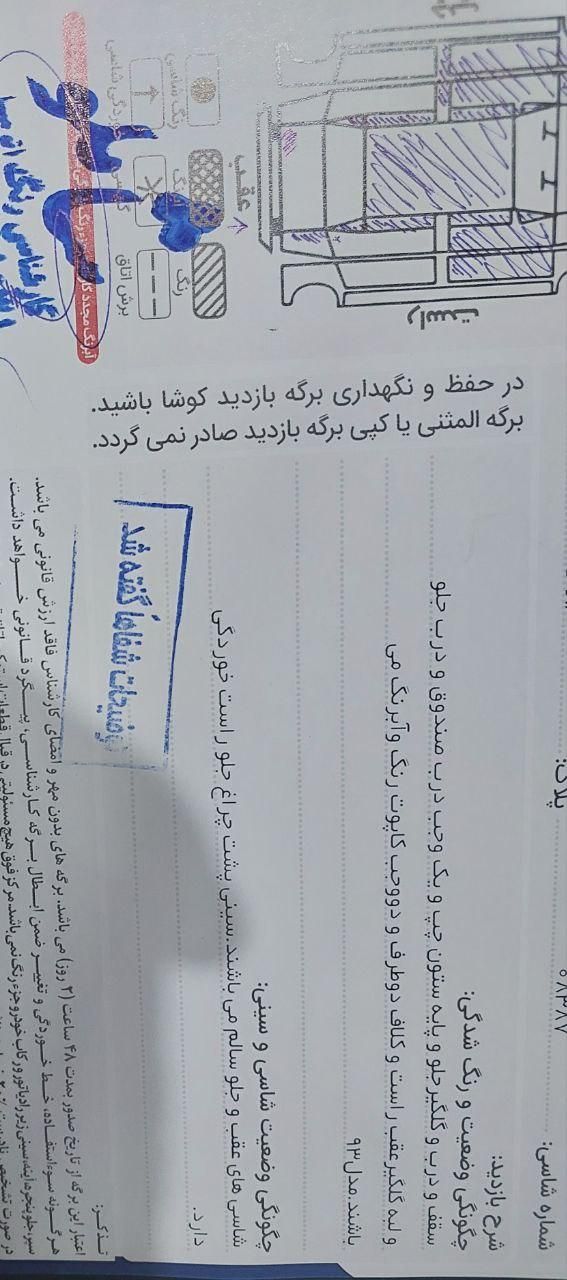 شماره شاسی:
۰۸۳۸۷
پلاک:
شرح بازدید:
چگونگی وضعیت و رنگ شدگی:
سقف و درب و گلگیر جلو و پایه ستون چپ و یک وجب درب صندوق و درب جلو
و لبه گلگیر عقب راست و کلاف دوطرف و دووجب کاپوت رنگ وآبرنگ می
باشند.مدل۹۳
چگونگی وضعیت شاسی و سینی:
شاسی های عقب و جلو سالم می باشند.سینی پشت چراغ جلو راست خوردگی
دارد.
توضیحات شفاها گفته شد
در حفظ و نگهداری برگه بازدید کوشا باشید.
برگه المثنی یا کپی برگه بازدید صادر نمی گردد.
راست
عقب
رنگ
برش اتاق
رنگ شاسی
خوردگی شاسی
تذکر:
اعتبار این برگه از تاریخ صدور بمدت ۴۸ ساعت (۲ روز) می باشد. برگه های بدون مهر و امضای کارشناس فاقد ارزش قانونی می باشد.
هرگونه سوءاستفاده، خط خوردگی و تغییر ضمن ابطال برگه کارشناسی، پیگرد قانونی خواهد داشت.